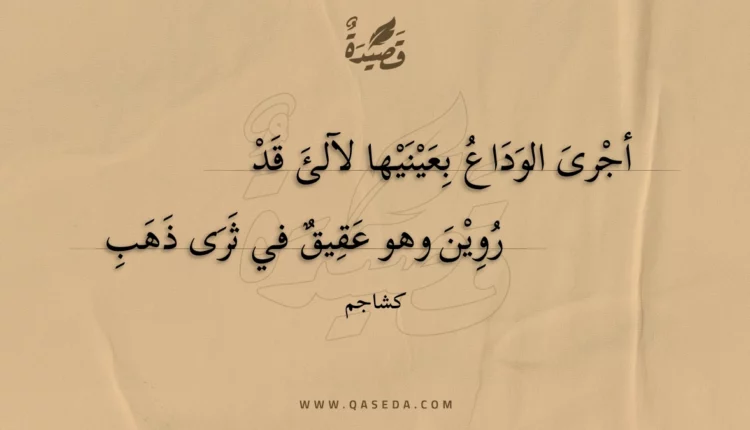 قَصِيْدَةٌ
أجْرىَ الوَدَاعُ بِعَيْنَيْها لآلئَ قَدْ
رُوِيْنَ وهو عَقِيقٌ في ثَرَى ذَهَبِ
كشاجم
WWW.QASEDA.COM